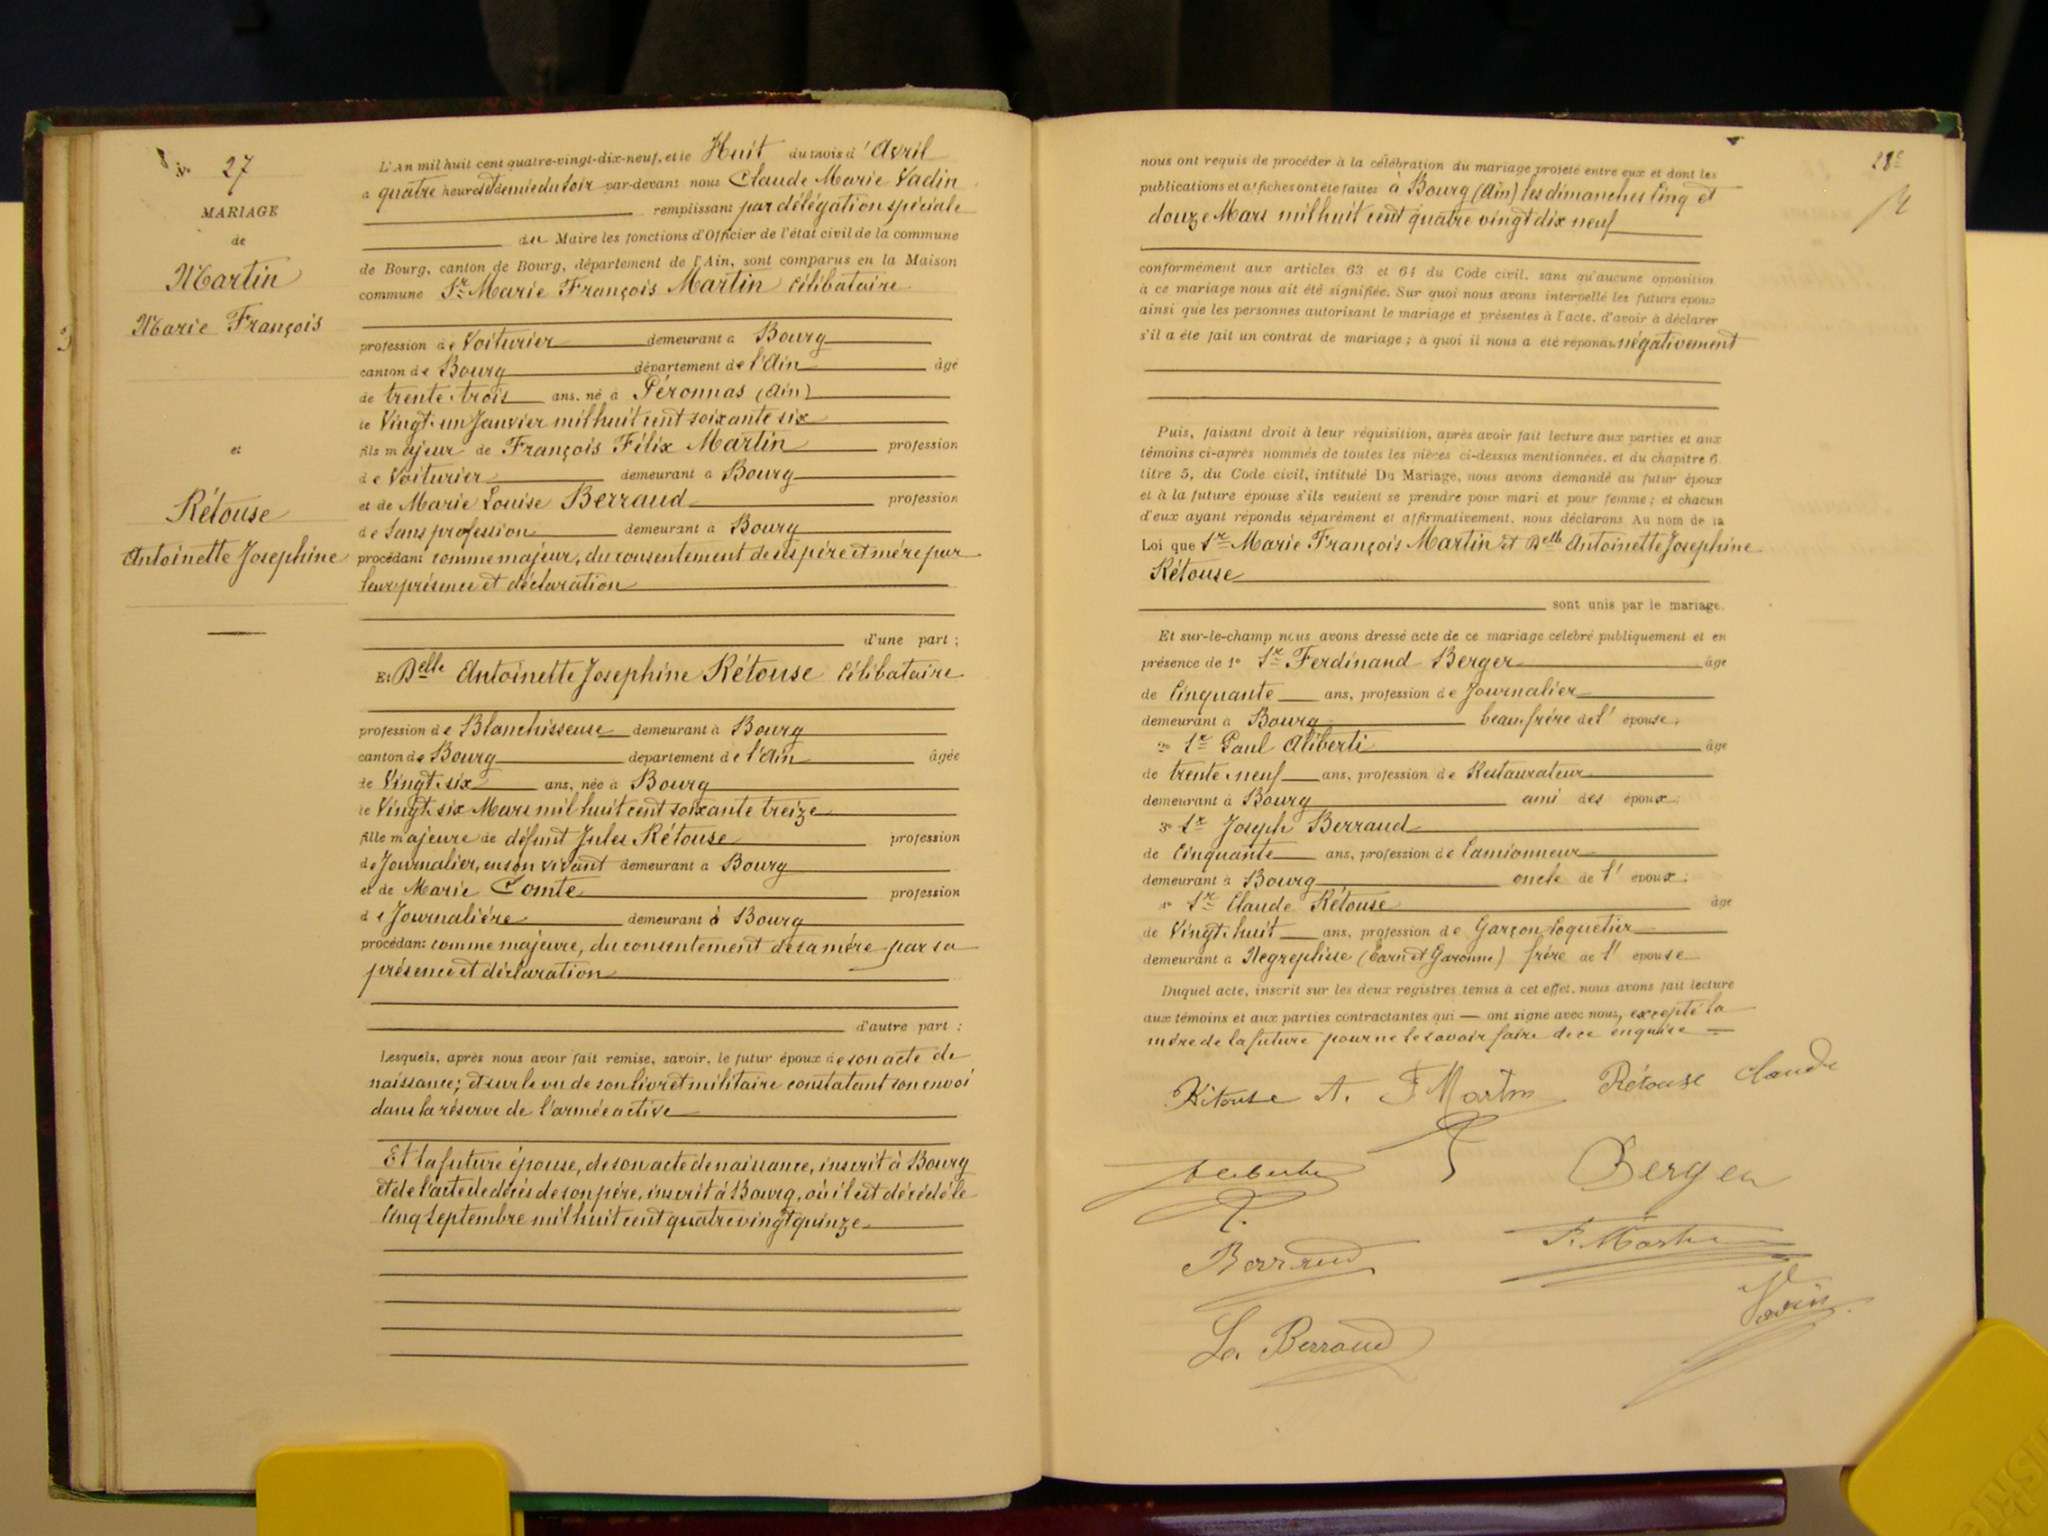 N° 27
MARIAGE
de
Martin
Marie François
et
Rétouse
Antoinette Josephine
L'An mil huit cent quatre-vingt-dix-neuf, et le Huit du mois d'Avril
à quatre heures et demie du soir par-devant nous Claude Marie Vadin
remplissant par délégation spéciale
du Maire les fonctions d'Officier de l'état civil de la commune
de Bourg, canton de Bourg, département de l'Ain, sont comparus en la Maison
commune Sr Marie François Martin Célibataire
profession de Voiturier demeurant à Bourg
canton de Bourg département de l'Ain âgé
de trente-trois ans, né à Péronnas (Ain)
le Vingt-un Janvier mil huit cent soixante six
fils majeur de François Félix Martin profession
de Voiturier demeurant à Bourg
et de Marie Louise Berraud profession
de Sans profession demeurant à Bourg
procédant comme majeur, du consentement de ses père et mère par
leur présence et déclaration
d'une part ;
Et Delle Antoinette Josephine Rétouse Célibataire
profession de Blanchisseuse demeurant à Bourg
canton de Bourg département de l'Ain âgée
de Vingt-six ans, née à Bourg
le Vingt-six Mars mil huit cent soixante treize
fille majeure de défunt Jules Rétouse profession
de Journalier, en son vivant demeurant à Bourg
et de Marie Comte profession
de Journalière demeurant à Bourg
procédant comme majeure, du consentement de sa mère par sa
présence et déclaration
d'autre part ;
Lesquels, après nous avoir fait remise, savoir, le futur époux de son acte de
naissance; et sur le vu de son livret militaire constatant son envoi
dans la réserve de l'armée active
Et la future épouse, de son acte de naissance, inscrit à Bourg
et de l'acte de décès de son père, inscrit à Bourg, où il est décédé le
Cinq Septembre mil huit cent quatre vingt quinze
28e
nous ont requis de procéder à la célébration du mariage projeté entre eux et dont les
publications et affiches ont été faites à Bourg (Ain) les dimanches Cinq et
douze Mars mil huit cent quatre vingt dix neuf
conformément aux articles 63 et 64 du Code civil, sans qu'aucune opposition
à ce mariage nous ait été signifiée. Sur quoi nous avons interpellé les futurs époux
ainsi que les personnes autorisant le mariage et présentes à l'acte, d'avoir à déclarer
s'il a été fait un contrat de mariage ; à quoi il nous a été répondu négativement
Puis, faisant droit à leur réquisition, après avoir fait lecture aux parties et aux
témoins ci-après nommés de toutes les pièces ci-dessus mentionnées, et du chapitre 6
titre 5, du Code civil, intitulé Du Mariage, nous avons demandé au futur époux
et à la future épouse s'ils veulent se prendre pour mari et pour femme ; et chacun
d'eux ayant répondu séparément et affirmativement, nous déclarons Au nom de la
Loi que Sr Marie François Martin et Delle Antoinette Josephine
Rétouse
sont unis par le mariage.
Et sur-le-champ nous avons dressé acte de ce mariage célébré publiquement et en
présence de 1° Sr Ferdinand Berger âgé
de Cinquante ans, profession de Journalier
demeurant à Bourg beau frère de l'épouse ;
2° Sr Paul Aliberti âgé
de trente-neuf ans, profession de Restaurateur
demeurant à Bourg ami des époux ;
3° Sr Joseph Berraud
de Cinquante ans, profession de Camionneur
demeurant à Bourg oncle de l'époux ;
4° Sr Claude Rétouse âgé
de Vingt-huit ans, profession de Garçon loquetier
demeurant à Negreplisse (Tarn et Garonne) frère de l'épouse
Duquel acte, inscrit sur les deux registres tenus à cet effet, nous avons fait lecture
aux témoins et aux parties contractantes qui — ont signé avec nous, excepté la
mère de la future pour ne le savoir faire de ce enquise
Rétouse A. F Martin Rétouse Claude
Berger
Berraud F. Martin
Vadin
Berraud